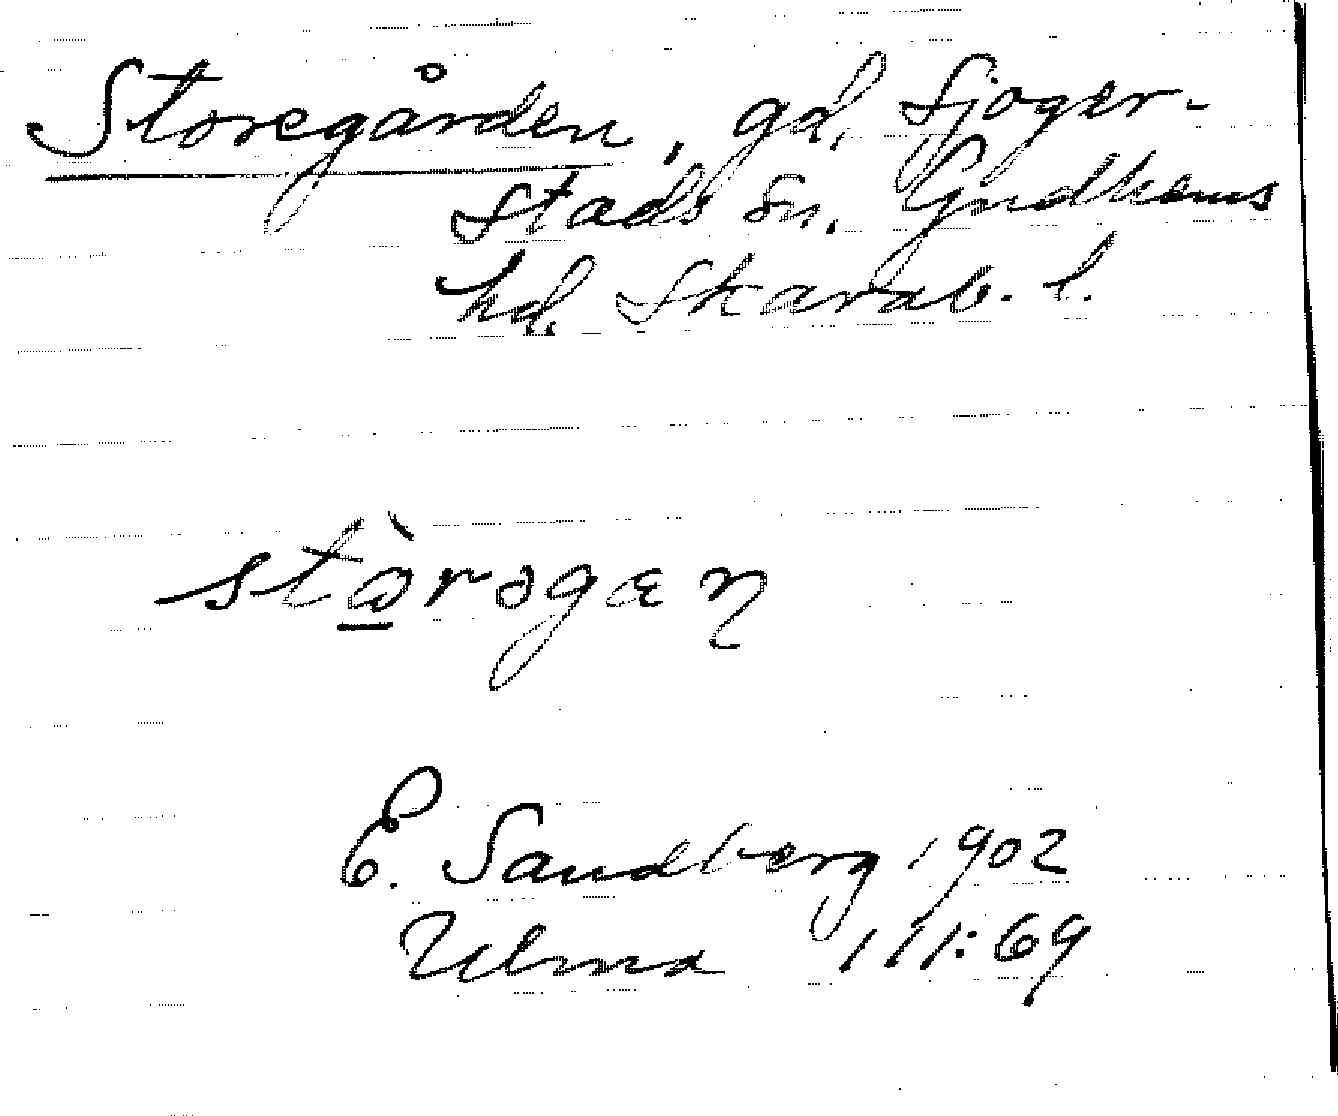 Storegården, gd, Sjoger-
stads sn. Gudhems
hd, Skarab. l.
stɷ̀rəgæn
E. Sandberg 1902
Ulma 111:69